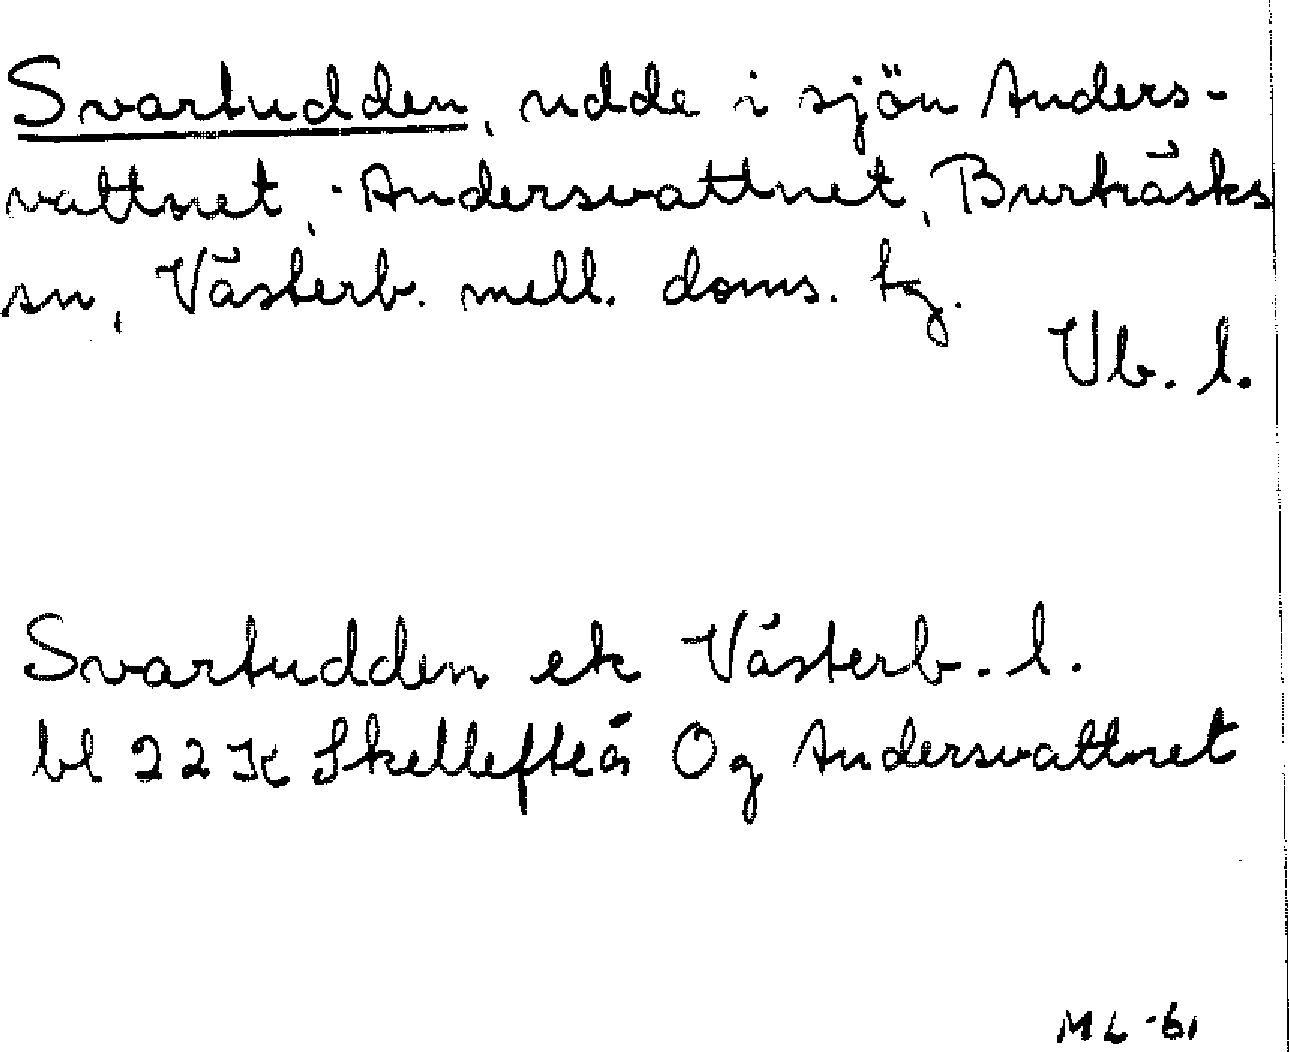 Svartudden, udde i sjön Anders-
vattnet, Andersvattnet, Burträsks
sn, Västerb. mell. doms. tg.
Vb. l.
Svartudden ek Västerb. l.
bl 22 K Skellefteå Og Andersvattnet
ML -61